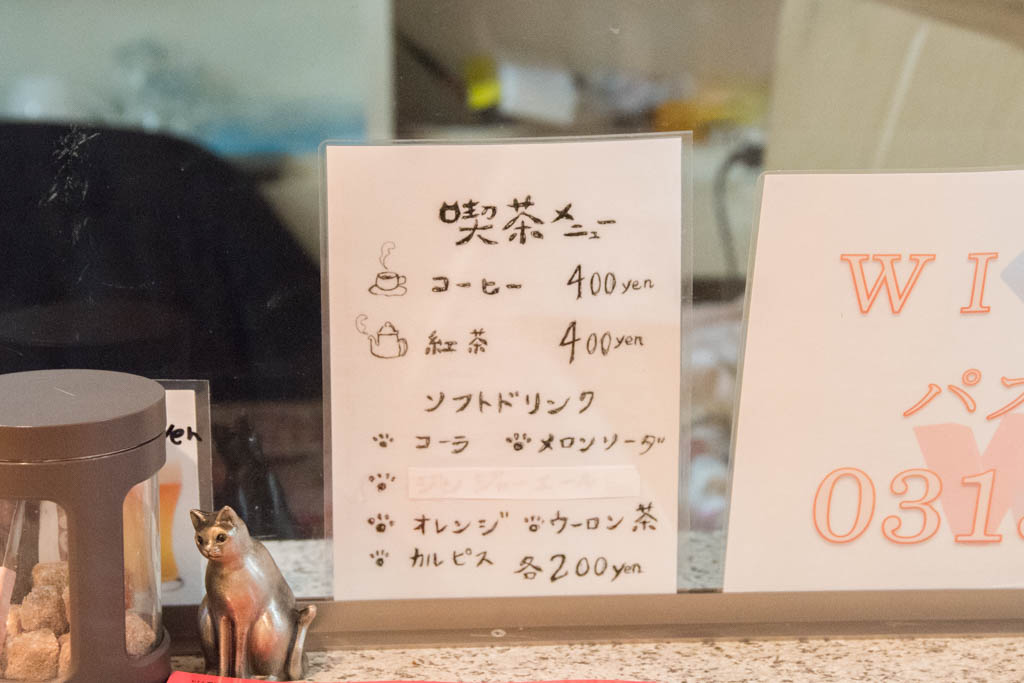 喫茶メニュー
コーヒー 400yen
紅茶 400yen
ソフトドリンク
コーラ メロンソーダ
ジンジャーエール
オレンジ ウーロン茶
カルピス 各200yen
yen
WI
パス
031